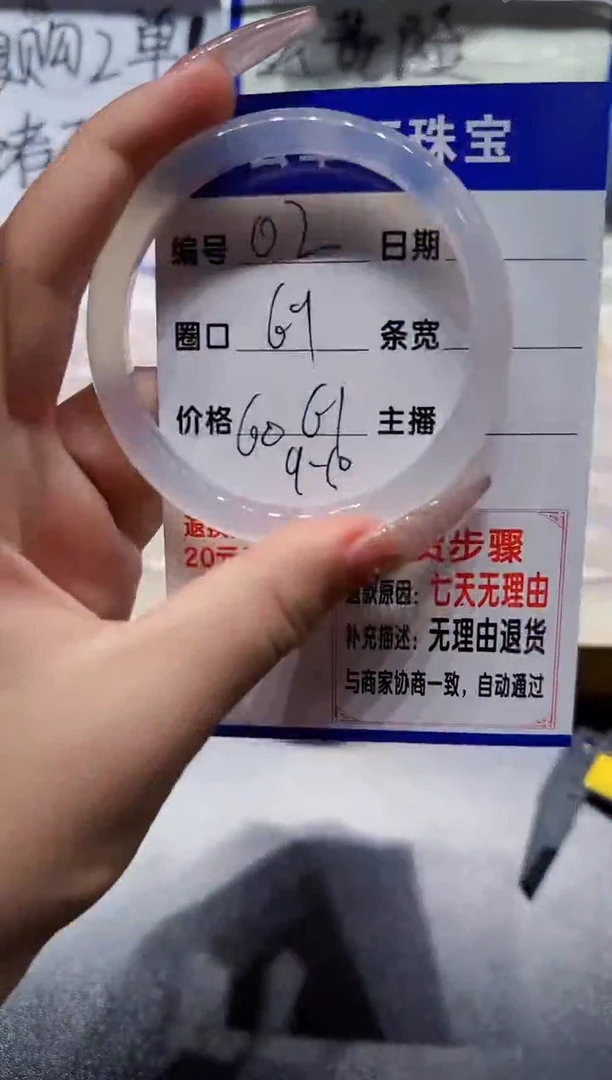 购2单
珠宝
编号 02 日期
圈口 61 条宽
价格 60 61 主播
9-10
20元
步骤
退款原因：七天无理由
补充描述：无理由退货
与商家协商一致，自动通过